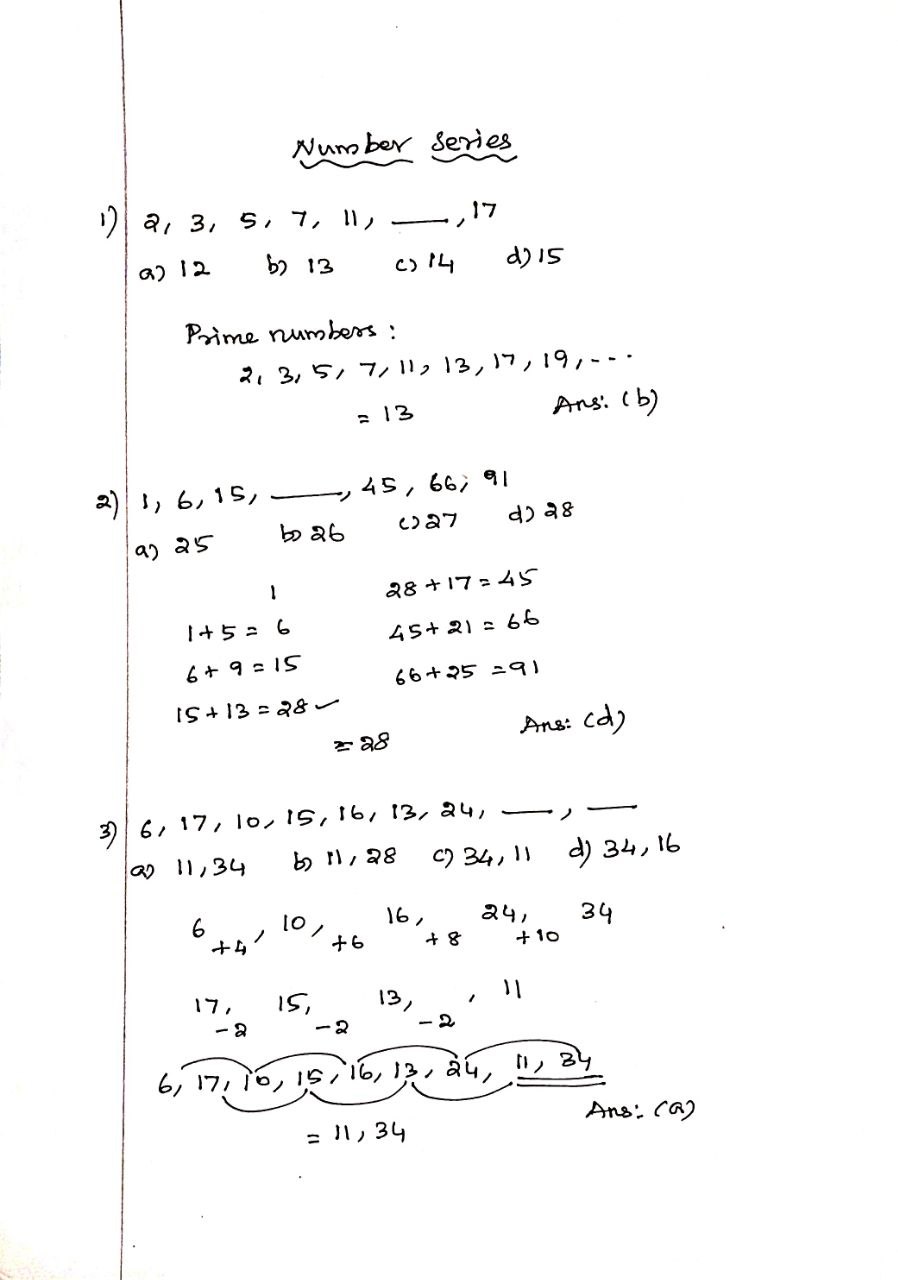 Number series
1) 2, 3, 5, 7, 11, ___, 17
a) 12 b) 13 c) 14 d) 15
Prime numbers :
2, 3, 5, 7, 11, 13, 17, 19, ---
= 13 Ans: (b)
2) 1, 6, 15, ___, 45, 66, 91
a) 25 b) 26 c) 27 d) 28
1 28 + 17 = 45
1 + 5 = 6 45 + 21 = 66
6 + 9 = 15 66 + 25 = 91
15 + 13 = 28 ✓
= 28 Ans: (d)
3) 6, 17, 10, 15, 16, 13, 24, ___, ___
a) 11, 34 b) 11, 28 c) 34, 11 d) 34, 16
6 +4 , 10, +6 16, +8 24, +10 34
17, -2 15, -2 13, -2 , 11
6, 17, 10, 15, 16, 13, 24, 11, 34
= 11, 34 Ans: (a)